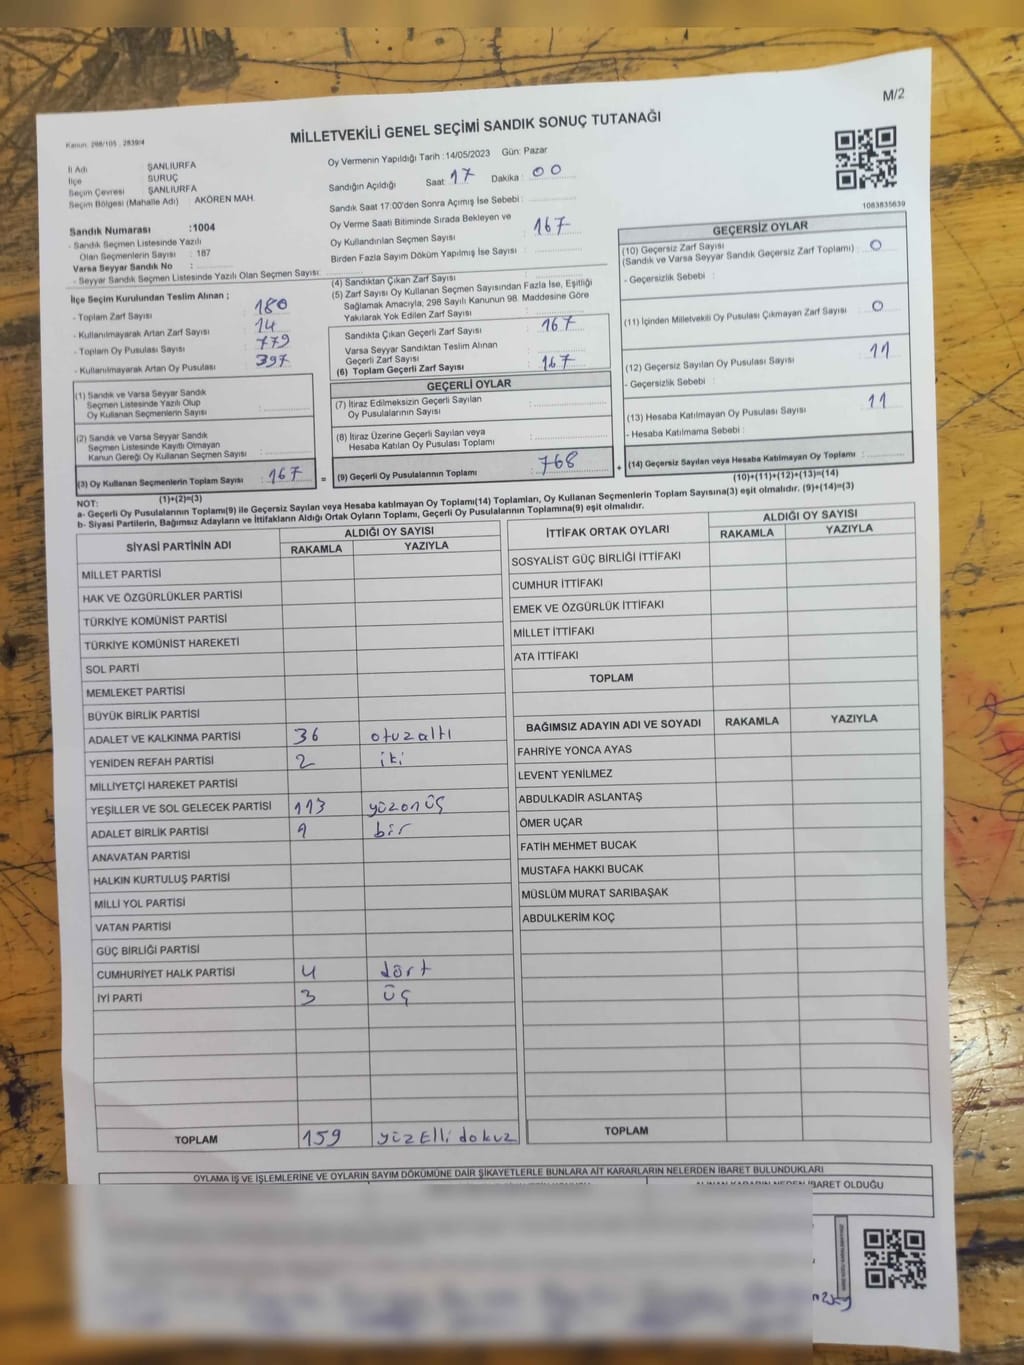 M/2
Kanun: 298/105 . 2839/4
MİLLETVEKİLİ GENEL SEÇİMİ SANDIK SONUÇ TUTANAĞI
İl Adı : ŞANLIURFA
İlçe : SURUÇ
Seçim Çevresi : ŞANLIURFA
Seçim Bölgesi (Mahalle Adı) : AKÖREN MAH.
Oy Vermenin Yapıldığı Tarih : 14/05/2023 Gün: Pazar
Sandığın Açıldığı Saat : 17 Dakika : 00
Sandık Saat 17:00'den Sonra Açımış İse Sebebi :
Oy Verme Saati Bitiminde Sırada Bekleyen ve
Oy Kullandırılan Seçmen Sayısı : 167
Birden Fazla Sayım Döküm Yapılmış İse Sayısı :
1083835639
Sandık Numarası :1004
- Sandık Seçmen Listesinde Yazılı
Olan Seçmenlerin Sayısı : 187
Varsa Seyyar Sandık No :
- Seyyar Sandık Seçmen Listesinde Yazılı Olan Seçmen Sayısı:
İlçe Seçim Kurulundan Teslim Alınan ;
- Toplam Zarf Sayısı : 180
- Kullanılmayarak Artan Zarf Sayısı : 14
- Toplam Oy Pusulası Sayısı : 779
- Kullanılmayarak Artan Oy Pusulası : 397
(1) Sandık ve Varsa Seyyar Sandık
Seçmen Listesinde Yazılı Olup
Oy Kullanan Seçmenlerin Sayısı :
(2) Sandık ve Varsa Seyyar Sandık
Seçmen Listesinde Kayıtlı Olmayan
Kanun Gereği Oy Kullanan Seçmen Sayısı :
(3) Oy Kullanan Seçmenlerin Toplam Sayısı : 167
(1)+(2)=(3)
(4) Sandıktan Çıkan Zarf Sayısı :
(5) Zarf Sayısı Oy Kullanan Seçmen Sayısından Fazla İse, Eşitliği
Sağlamak Amacıyla, 298 Sayılı Kanunun 98. Maddesine Göre
Yakılarak Yok Edilen Zarf Sayısı :
Sandıkta Çıkan Geçerli Zarf Sayısı : 167
Varsa Seyyar Sandıktan Teslim Alınan
Geçerli Zarf Sayısı :
(6) Toplam Geçerli Zarf Sayısı : 167
GEÇERLİ OYLAR
(7) İtiraz Edilmeksizin Geçerli Sayılan
Oy Pusulalarının Sayısı :
(8) İtiraz Üzerine Geçerli Sayılan veya
Hesaba Katılan Oy Pusulası Toplamı :
= (9) Geçerli Oy Pusulalarının Toplamı : 768
GEÇERSİZ OYLAR
(10) Geçersiz Zarf Sayısı
(Sandık ve Varsa Seyyar Sandık Geçersiz Zarf Toplamı) : 0
- Geçersizlik Sebebi :
(11) İçinden Milletvekili Oy Pusulası Çıkmayan Zarf Sayısı : 0
(12) Geçersiz Sayılan Oy Pusulası Sayısı : 11
- Geçersizlik Sebebi :
(13) Hesaba Katılmayan Oy Pusulası Sayısı : 11
- Hesaba Katılmama Sebebi :
+ (14) Geçersiz Sayılan veya Hesaba Katılmayan Oy Toplamı :
(10)+(11)+(12)+(13)=(14)
NOT:
a- Geçerli Oy Pusulalarının Toplamı(9) ile Geçersiz Sayılan veya Hesaba katılmayan Oy Toplamı(14) Toplamları, Oy Kullanan Seçmenlerin Toplam Sayısına(3) eşit olmalıdır. (9)+(14)=(3)
b- Siyasi Partilerin, Bağımsız Adayların ve İttifakların Aldığı Ortak Oyların Toplamı, Geçerli Oy Pusulalarının Toplamına(9) eşit olmalıdır.
SİYASİ PARTİNİN ADI ALDIĞI OY SAYISI
RAKAMLA YAZIYLA
MİLLET PARTİSİ
HAK VE ÖZGÜRLÜKLER PARTİSİ
TÜRKİYE KOMÜNİST PARTİSİ
TÜRKİYE KOMÜNİST HAREKETİ
SOL PARTİ
MEMLEKET PARTİSİ
BÜYÜK BİRLİK PARTİSİ
ADALET VE KALKINMA PARTİSİ 36 otuzaltı
YENİDEN REFAH PARTİSİ 2 iki
MİLLİYETÇİ HAREKET PARTİSİ
YEŞİLLER VE SOL GELECEK PARTİSİ 113 yüzonüç
ADALET BİRLİK PARTİSİ 1 bir
ANAVATAN PARTİSİ
HALKIN KURTULUŞ PARTİSİ
MİLLİ YOL PARTİSİ
VATAN PARTİSİ
GÜÇ BİRLİĞİ PARTİSİ
CUMHURİYET HALK PARTİSİ 4 dört
İYİ PARTİ 3 üç
TOPLAM 159 yüzElli dokuz
İTTİFAK ORTAK OYLARI ALDIĞI OY SAYISI
RAKAMLA YAZIYLA
SOSYALİST GÜÇ BİRLİĞİ İTTİFAKI
CUMHUR İTTİFAKI
EMEK VE ÖZGÜRLÜK İTTİFAKI
MİLLET İTTİFAKI
ATA İTTİFAKI
TOPLAM
BAĞIMSIZ ADAYIN ADI VE SOYADI RAKAMLA YAZIYLA
FAHRİYE YONCA AYAS
LEVENT YENİLMEZ
ABDULKADİR ASLANTAŞ
ÖMER UÇAR
FATİH MEHMET BUCAK
MUSTAFA HAKKI BUCAK
MÜSLÜM MURAT SARIBAŞAK
ABDULKERİM KOÇ
TOPLAM
OYLAMA İŞ VE İŞLEMLERİNE VE OYLARIN SAYIM DÖKÜMÜNE DAİR ŞİKAYETLERLE BUNLARA AİT KARARLARIN NELERDEN İBARET BULUNDUKLARI
ALINAN KARARIN NEDEN İBARET OLDUĞU